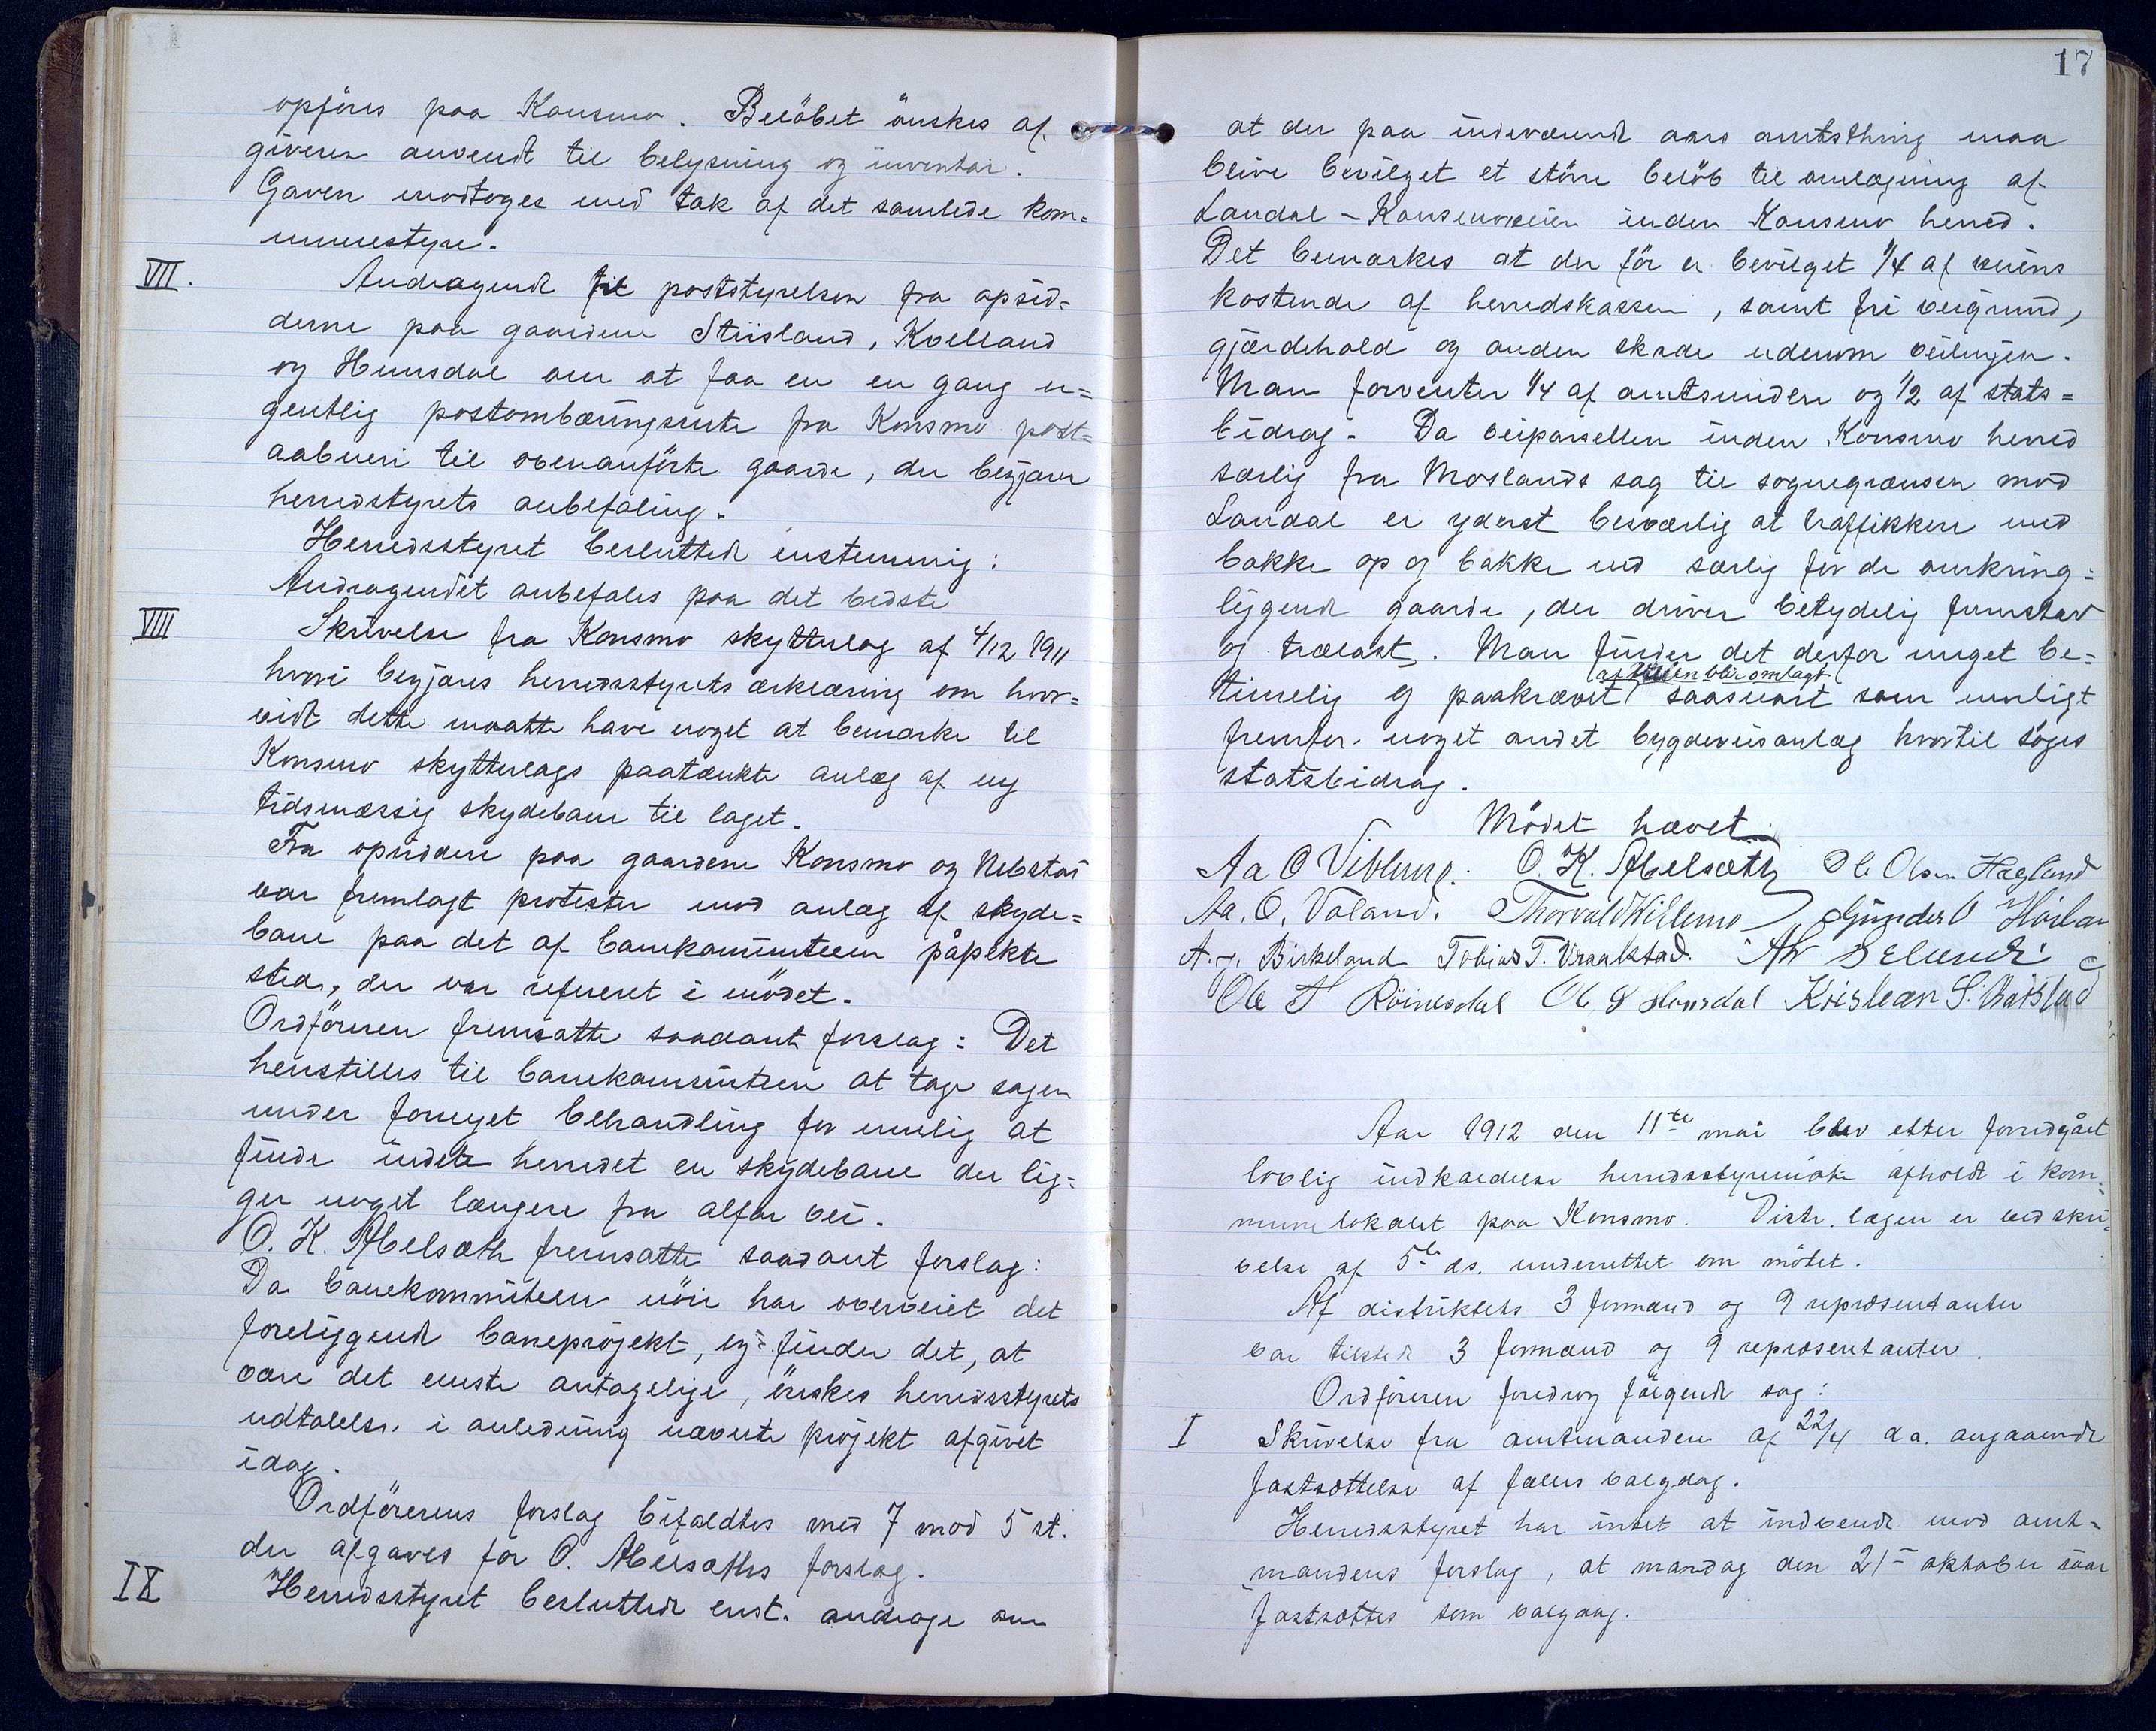 opføres paa Konsmo. Beløbet ønskes af
giveren anvendt til belysning og inventar.
Gaven modtoges med tak af det samlede kom=
munestyre.
VII. Andragende til poststyrelsen fra opsid=
derne paa gaardene Stiisland, Kvelland
og Hunsdal om at faa en en gang u=
gentlig postombæringsrute fra Konsmo post=
aabneri til ovenanførte gaarde, der begjærer
herredstyrets anbefaling.
Herredsstyret besluttede enstemmig:
Andragendet anbefales paa det bedste
VIII Skrivelse fra Konsmo skytterlag af 4/12 1911
hvori begjæres herredsstyrets erklæring om hvor=
vidt dette maatte have noget at bemærke til
Konsmo skytterlags paatænkte anlæg af ny
tidsmæssig skydebane til laget.
Fra opsiddere paa gaardene Konsmo og Nebstad
var fremlagt protester mod anlæg af skyde=
bane paa det af banekommiteen påpekte
sted, der var refereret i mødet.
Ordføreren fremsatte saadant forslag: Det
henstilles til banekommiteen at tage sagen
under fornyet behandling for mulig at
finde indete herredet en skydebane der lig=
ger noget længere fra alfar vei.
O. K. Abelsæth fremsatte saadant forslag:
Da banekommiteen nøie har overveiet det
foreliggende baneprojekt, og finder det, at
være det eneste antagelige, ønskes herredsstyrets
udtalelse i anledning nævnte projekt afgivet
idag.
Ordførerens forslag bifaldtes med 7 mod 5 st.
der afgaves for O. Abelsæths forslag.
IX Herredsstyret besluttede enst. andrage om
17
at der paa indeværende aars amtsthing maa
blive bevilget et større beløb til omlægning af
Landal - Konsmoveien inden Konsmo herred.
Det bemærkes at der før er bevilget 1/4 af veiens
kostende af herredskassen, samt fri veigrund,
gjærdehold og anden skade udenom veilinjen.
Man forventer 1/4 af amtsmidler og 1/2 af stats=
bidrag. Da veiparsellen inden Konsmo herred
særlig fra Moslands sag til sognegrænsen mod
Landal er yderst besværlig at traffikkere med
bakke op og bakke ned særlig for de omkring=
liggende gaarde, der driver betydelig
og trælast. Man finder det derfor meget be=
at veien blir omlagt
timelig og paakrævet saasnart som muligt
fremfor noget andet bygdeveisanlæg hvortil søges
statsbidrag.
Mødet hævet.
Aa O Viblemo. O. K. Abelsæth Ole Olsen Hægland
Aa. O. Valand. Thorvald Willemo Gunder O
A. J. Birkeland Tobias T. Vraakstad.
Ole T Røinesdal Ole Hunsdal Kristean S.
Aar 1912 den 11te mai blev efter forudgået
lovlig indkaldelse herredsstyremøte afholdt i kom=
munelokalet paa Konsmo. Distr. lægen er ved skri=
velse af 5te ds. underrettet om møtet.
Af distriktets 3 formænd og 9 repræsentanter
var tilstede 3 formænd og 9 repræsentanter.
Ordføreren foredrog følgende sag:
I Skrivelse fra amtmanden af 22/4 d.a. angaaende
fastsættelse af fælles valgdag.
Herredsstyret har intet at indvende mod amt=
mandens forslag, at mandag den 21de oktober iaar
fastsættes som valgdag.